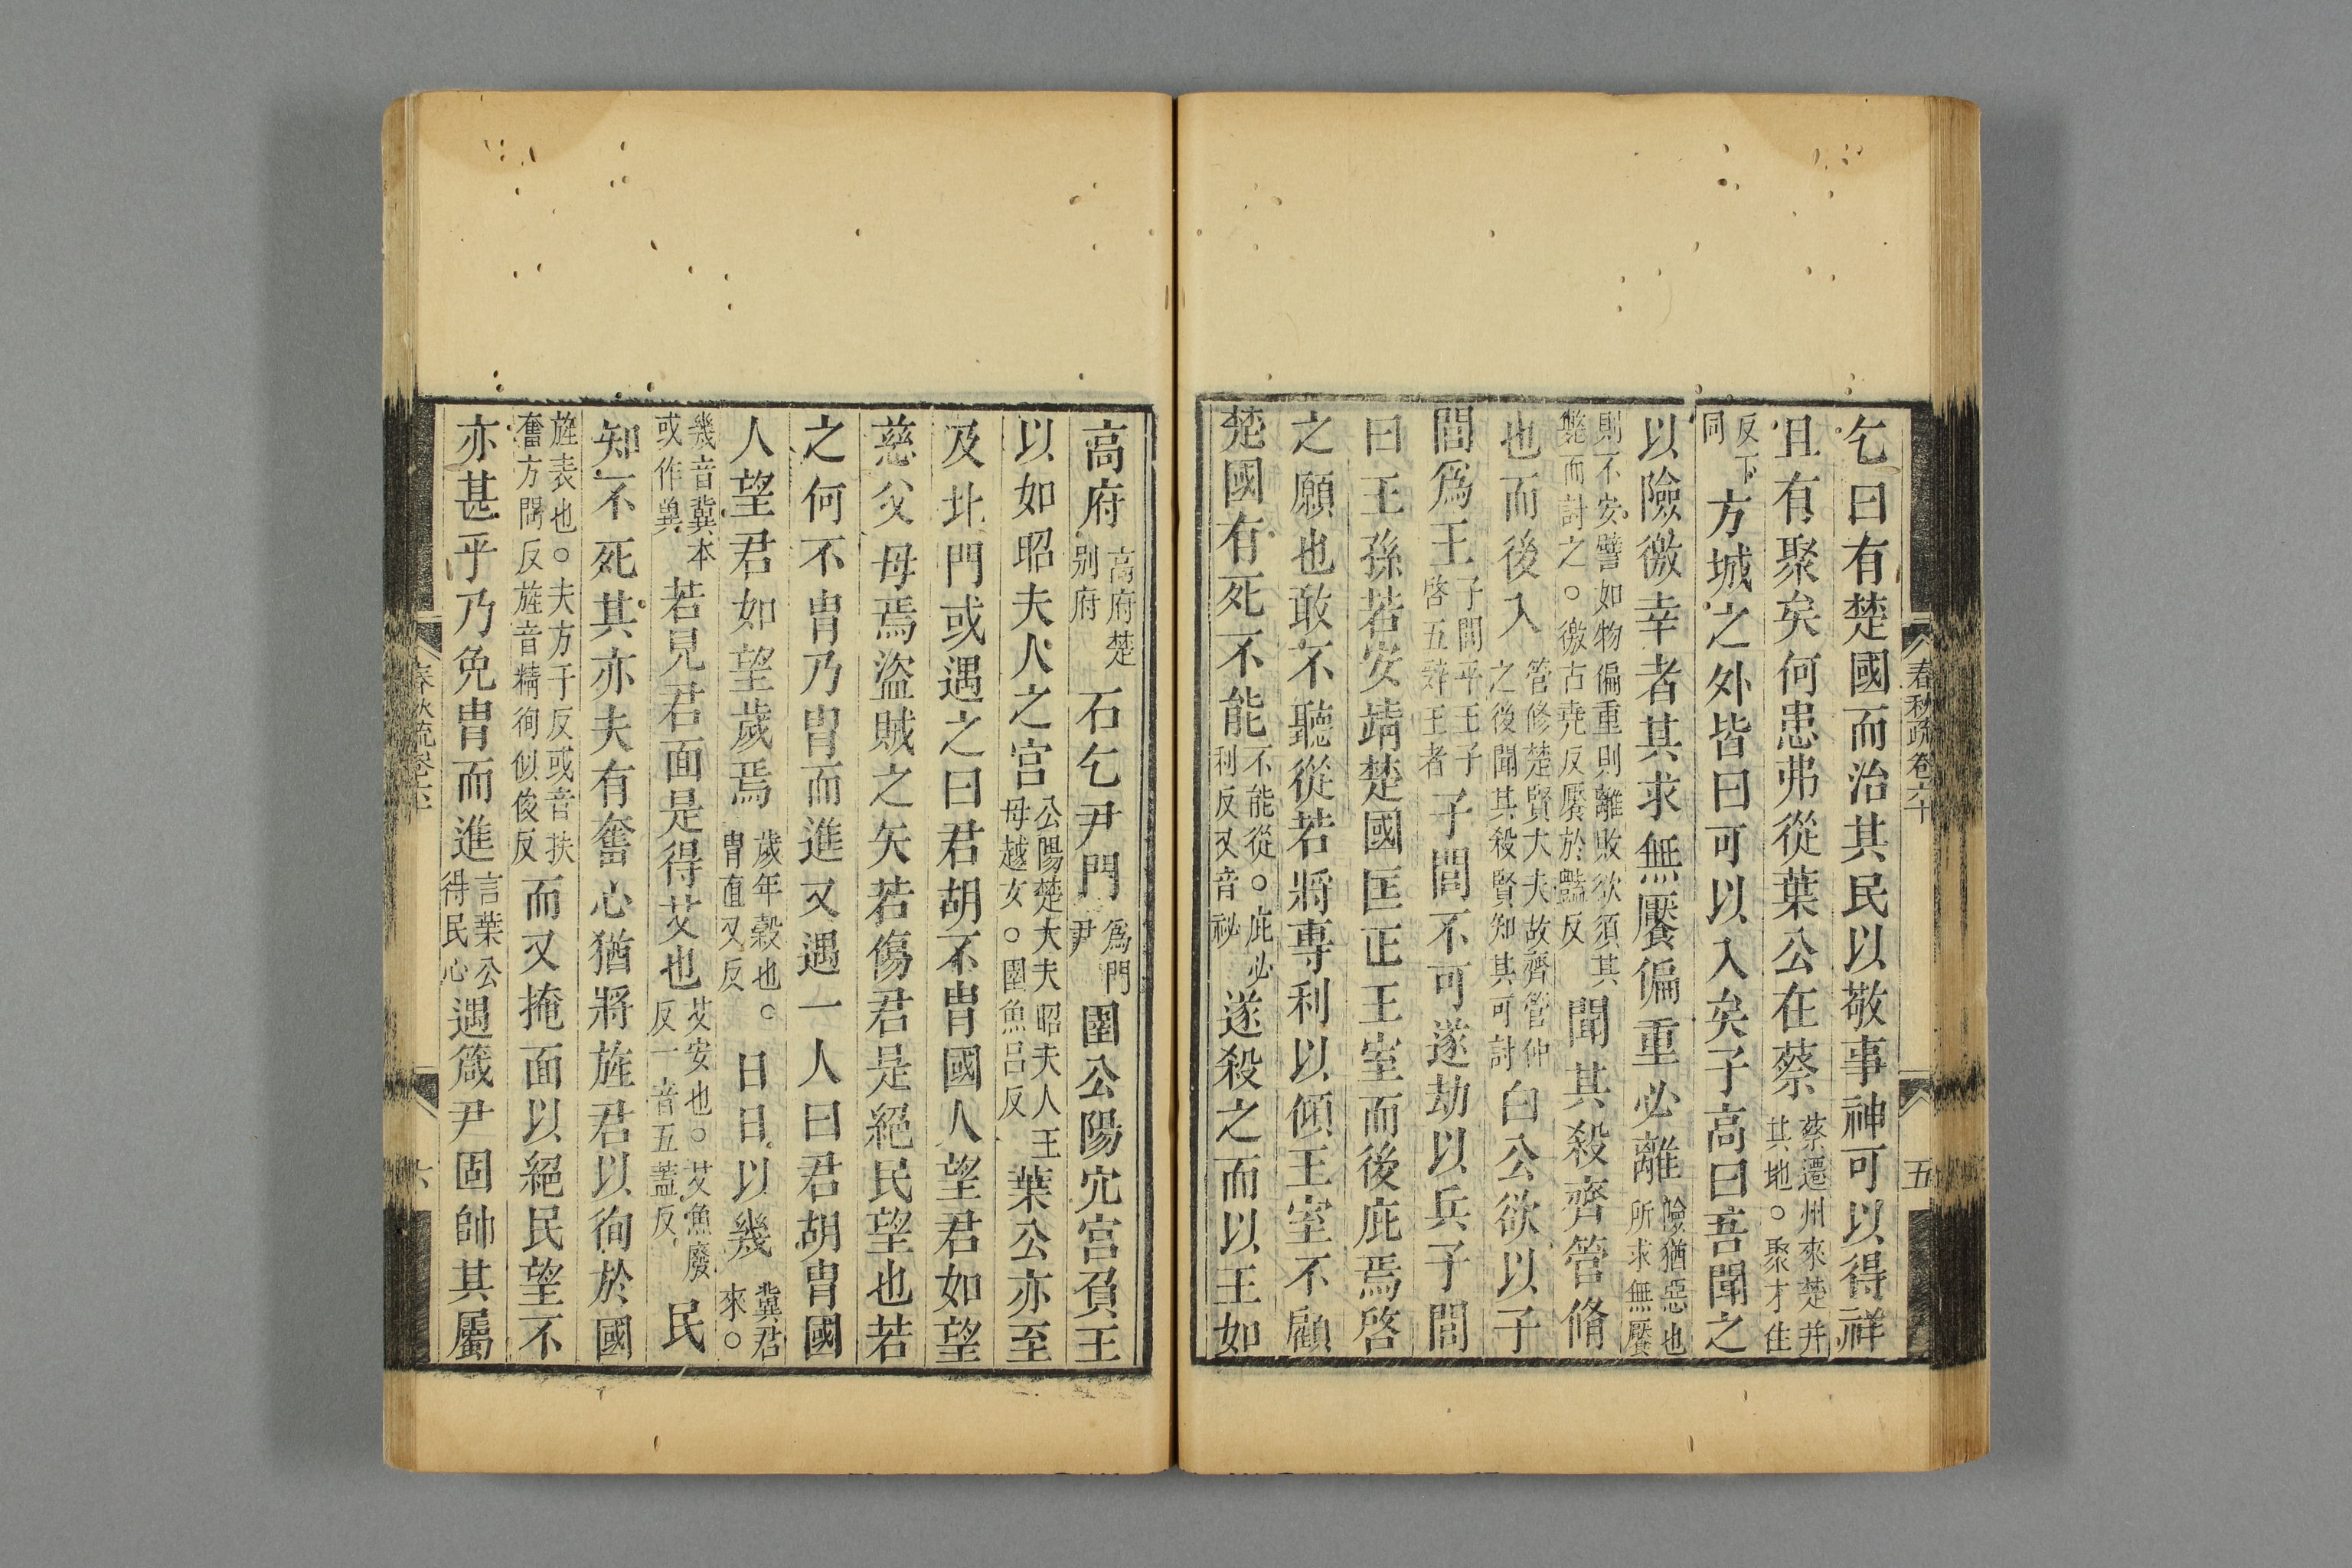 乞曰有楚國而治其民以敬事神可以得祥
且有聚矣何患弗從葉公在蔡蔡遷州來楚并其地○聚才住
反下同方城之外皆曰可以入矣子高曰吾聞之
以險徼幸者其求無饜偏重必離險猶惡也所求無饜
則不安譬如物偏重則離敗欲須其斃而討之○徼古堯反饜於豔反聞其殺齊管脩
也而後入管修楚賢大夫故齊管仲之後聞其殺賢知其可討白公欲以子
閭爲王子閭平王子啓五辭王者子閭不可遂劫以兵子閭
曰王孫若安靖楚國匡正王室而後庇焉啓
之願也敢不聽從若將專利以傾王室不顧
楚國有死不能不能從○庇必利反又音祕遂殺之而以王如
春秋疏卷六十
五
高府高府楚别府石乞尹門爲門尹圉公陽穴宮負王
以如昭夫人之宮公陽楚大夫昭夫人王母越女○圉魚呂反葉公亦至
及北門或遇之曰君胡不胄國人望君如望
慈父母焉盜賊之矢若傷君是絕民望也若
之何不胄乃胄而進又遇一人曰君胡胄國
人望君如望歲焉歲年穀也○胄直又反日日以幾冀君來○
幾音冀本或作冀若見君面是得艾也艾安也○艾魚廢反一音五蓋反民
知不死其亦夫有奮心猶將旌君以徇於國
旌表也○夫方于反或音扶奮方問反旌音精徇似俊反而又掩面以絕民望不
亦甚乎乃免胄而進言葉公得民心遇箴尹固帥其屬
春秋疏卷六十
六